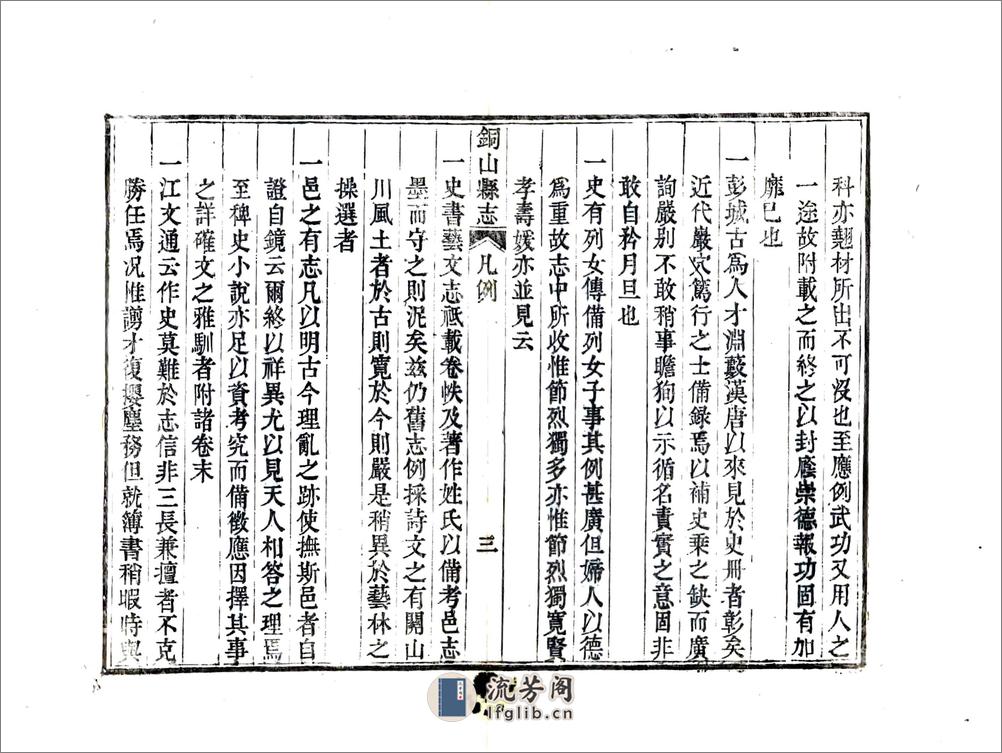 科亦翹材所出不可沒也至應例武功又用人之
一途故附載之而終之以封廕崇德報功固有加
靡已也
一彭城古爲人才淵藪漢唐以來見於史冊者彰矣
近代巖穴篤行之士備錄焉以補史乘之缺而廣
詢嚴别不敢稍事瞻狥以示循名責實之意固非
敢自矜月旦也
一史有列女傳備列女子事其例甚廣但婦人以德
爲重故志中所收惟節烈獨多亦惟節烈獨寛賢
孝壽媛亦並見云
銅山縣志 凡例 三
一史書藝文志祗載卷帙及著作姓氏以備考邑志
墨而守之則泥矣兹仍舊志例採詩文之有關山
川風土者於古則寛於今則嚴是稍異於藝林之
操選者
一邑之有志凡以明古今理亂之跡使撫斯邑者自
證自鏡云爾終以祥異尤以見天人相答之理焉
至稗史小說亦足以資考究而備徵應因擇其事
之詳確文之雅馴者附諸卷末
一江文通云作史莫難於志信非三長兼擅者不克
勝任焉况惟謭才復攖塵務但就簿書稍暇時與
流芳阁
lfglib.cn